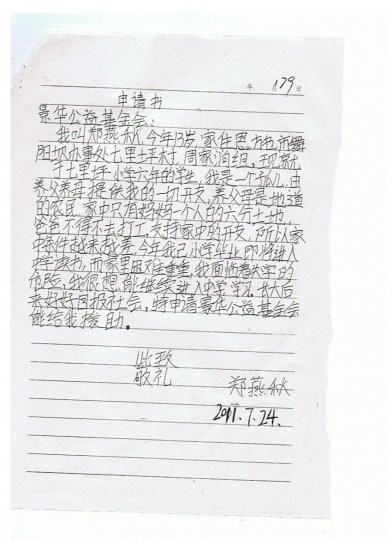 年 月 29 日
申请书
豪华公益基金会:
我叫郑燕秋,今年13岁,家住恩施市舞
阳坝办事处七里坪村周家洞组,现就
于七里坪小学六年的学生,我是一个孤儿,由
养父养母提供我的一切开支,养父母是地道
的农民,家中只有妈妈一个人的六分土地
爸爸不得不去打工,支持家中的开支,所以家
中条件越来越差,今年我已小学毕业,即将进入
中学读书,而家里困难重重,我面临着失学的
危险,我很想能继续进入中学学习,长大后
来好好回报社会,特申请豪华公益基金会
能给我援助。
此致
敬礼
郑燕秋
2011.7.24.